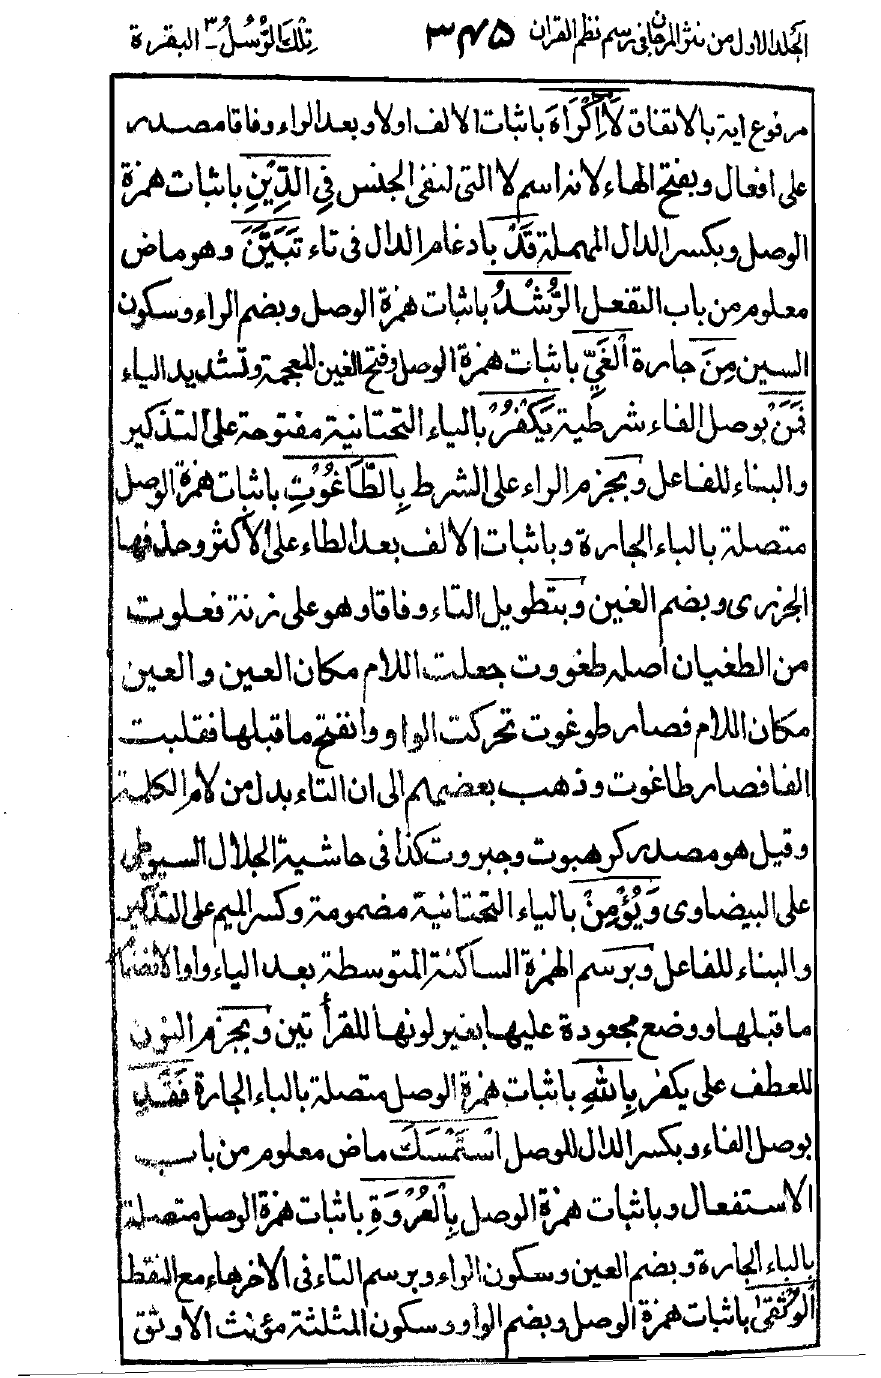 الجلد الاول من نثر المرجان فى رسم نظم القران ٣٤٥ تِلْكَ الرُّسُلُ ٣ البقرة
مرفوع اية بالاتفاق لَآ اِكْرَاهَ باثبات الالف اولا وبعد الراء وفاقا مصدر
على افعال وبفتح الهاء لانه اسم لا التى لنفى الجنس فِى الدِّيْنِ باثبات همزة
الوصل وبكسر الدال المهملة قَدْ بادغام الدال فى تاء تَبَيَّنَ وهو ماض
معلوم من باب التفعل الرُّشْدُ باثبات همزة الوصل وبضم الراء وسكون
السين مِنَ جارة الْغَيِّ باثبات همزة الوصل وفتح الغين المعجمة وتشديد الياء
فَمَنْ بوصل الفاء شرطية يَكْفُرْ بالياء التحتانية مفتوحة على التذكير
والبناء للفاعل وبجزم الراء على الشرط بِالطَّاغُوْتِ باثبات همزة الوصل
متصلة بالباء الجارة وباثبات الالف بعد الطاء على الاكثر وحذفها
الجزرى وبضم الغين وبتطويل التاء وفاقا وهو على زنة فعلوت
من الطغيان اصله طغووت جعلت اللام مكان العين والعين
مكان اللام فصار طوغوت تحركت الواو وانفتح ما قبلها فقلبت
الفا فصار طاغوت وذهب بعضهم الى ان التاء بدل من لام الكلمة
وقيل هو مصدر كرهبوت وجبروت كذا فى حاشية الجلال السيوطى
على البيضاوى وَيُؤْمِنْ بالياء التحتانية مضمومة وكسر الميم على التذكير
والبناء للفاعل وبرسم الهمزة الساكنة المتوسطة بعد الياء واوا لانضمام
ما قبلها ووضع مجعودة عليها بغير لونها للقرأتين وبجزم النون
للعطف على يكفر بِاللهِ باثبات همزة الوصل متصلة بالباء الجارة فَقَدِ
بوصل الفاء وبكسر الدال للوصل اسْتَمْسَكَ ماض معلوم من باب
الاستفعال وباثبات همزة الوصل بِالْعُرْوَةِ باثبات همزة الوصل متصلة
بالباء الجارة وبضم العين وسكون الراء وبرسم التاء فى الاخر هاء مع النقط
الْوُثْقٰى باثبات همزة الوصل وبضم الواو وسكون المثلثة مؤنث الاوثق